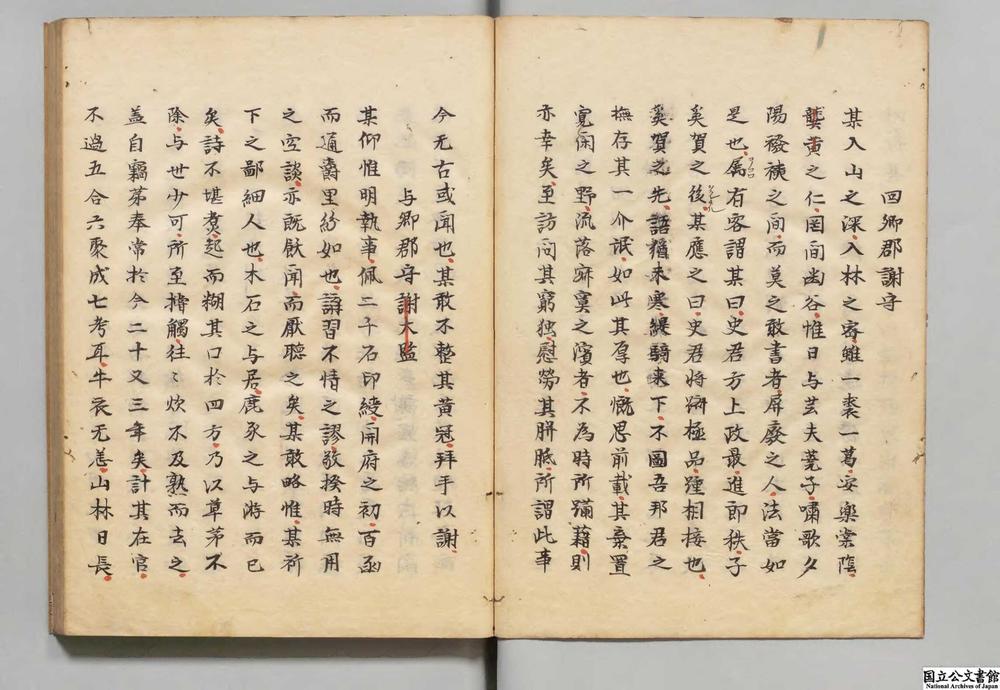 回卿郡謝守
某入山之深入林之密雖一裘一葛安樂棠隂
龔黄之仁罔間幽谷惟日与芸夫蕘子嘯歌夕
陽襏襫之間而莫之敢書者屏廢之人法當如
是也属有客謂某曰史君方上政最進即秩子
奚賀之後某應之曰史君将躋極品踵相接也
奚賀之先語猶未寒緹騎来下不圖吾邦君之
撫存其一介訊如此其厚也慨思前載其棄置
寛閑之野流落寂寞之濱者不為時所蹣藉則
亦幸矣至訪问其窮独慰勞其胼胝所謂此事
今无古或聞也某敢不整其黄冠拜手以謝
与卿郡守謝大監
某仰惟明執事佩二千石印綬開府之初百函
而通爵里紛如也講習不情之謬敬揆時無用
之空談亦既飫聞而厭聴之矣某敢略惟某祈
下之鄙細人也木石之与居鹿豕之与游而已
矣詩不堪煑起而糊其口於四方乃以草茅不
除与世少可所至搪觸往〻炊不及熟而去之
盖自竊第奉常於今二十又三年矣計其在官
不過五合六聚成七考耳牛衣无恙山林日長
国立公文書館
National Archives of Japan